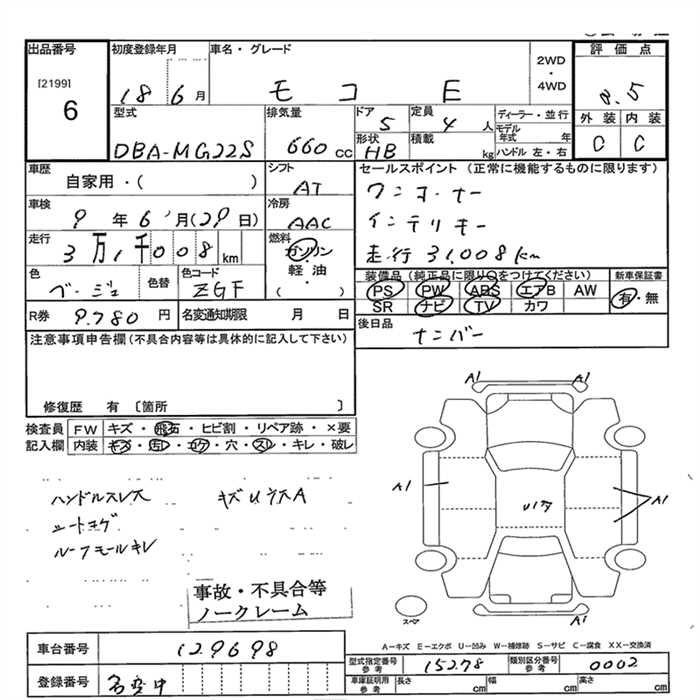 出品番号 初度登録年月 車名・グレード 評価点
[2199] 2WD・4WD
6 18 6月 モコ E 3.5
型式 排気量 ドア 5 定員 4人 ディーラー・並行 外装 内装
DBA-MG22S 660cc 形状 HB 積載 kg モデル年式 年 C C
ハンドル 左・右
車歴 シフト セールスポイント (正常に機能するものに限ります)
自家用・( ) AT ワンオーナー
車検 9年 6月(29日) 冷房 AAC インテリキー
走行 3万1千008km 燃料 ガソリン・軽油・( ) 走行31,008km
色 ベージュ 色替 色コード ZGF
装備品 (純正品に限り○をつけてください) 新車保証書
PS PW ABS エアB AW 有・無
SR ナビ TV カワ
R券 9,780円 名変通知期限 月 日 後日品 ナンバー
注意事項申告欄(不具合内容等は具体的に記入して下さい)
修復歴 有 〔箇所 〕
検査員 FW キズ・飛石・ヒビ割・リペア跡・×要
記入欄 内装 キズ・汚レ・コゲ・穴・スレ・キレ・破レ
A1 A1
ハンドルスレ大 キズUラスA A1 A1
シートコゲ Uリア
ルーフモールキレ
事故・不具合等
ノークレーム
スペア
A-キズ E-エクボ U-凹み W-補修跡 S-サビ C-腐食 XX-交換済
車台番号 129698
型式指定番号 参考 15278 類別区分番号 参考 0002
登録番号 名変中 車庫証明用 参考 長さ cm 幅 cm 高さ cm